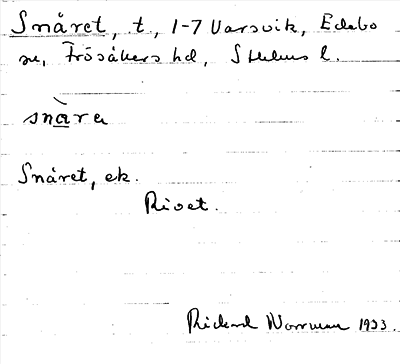 Snåret, t, 1-7 Varsvik, Edebo
sn, Frösåkers hd, Sthlms l.
snàra
Snåret, ek.
Rivet.
Rickard Norrman 1933.